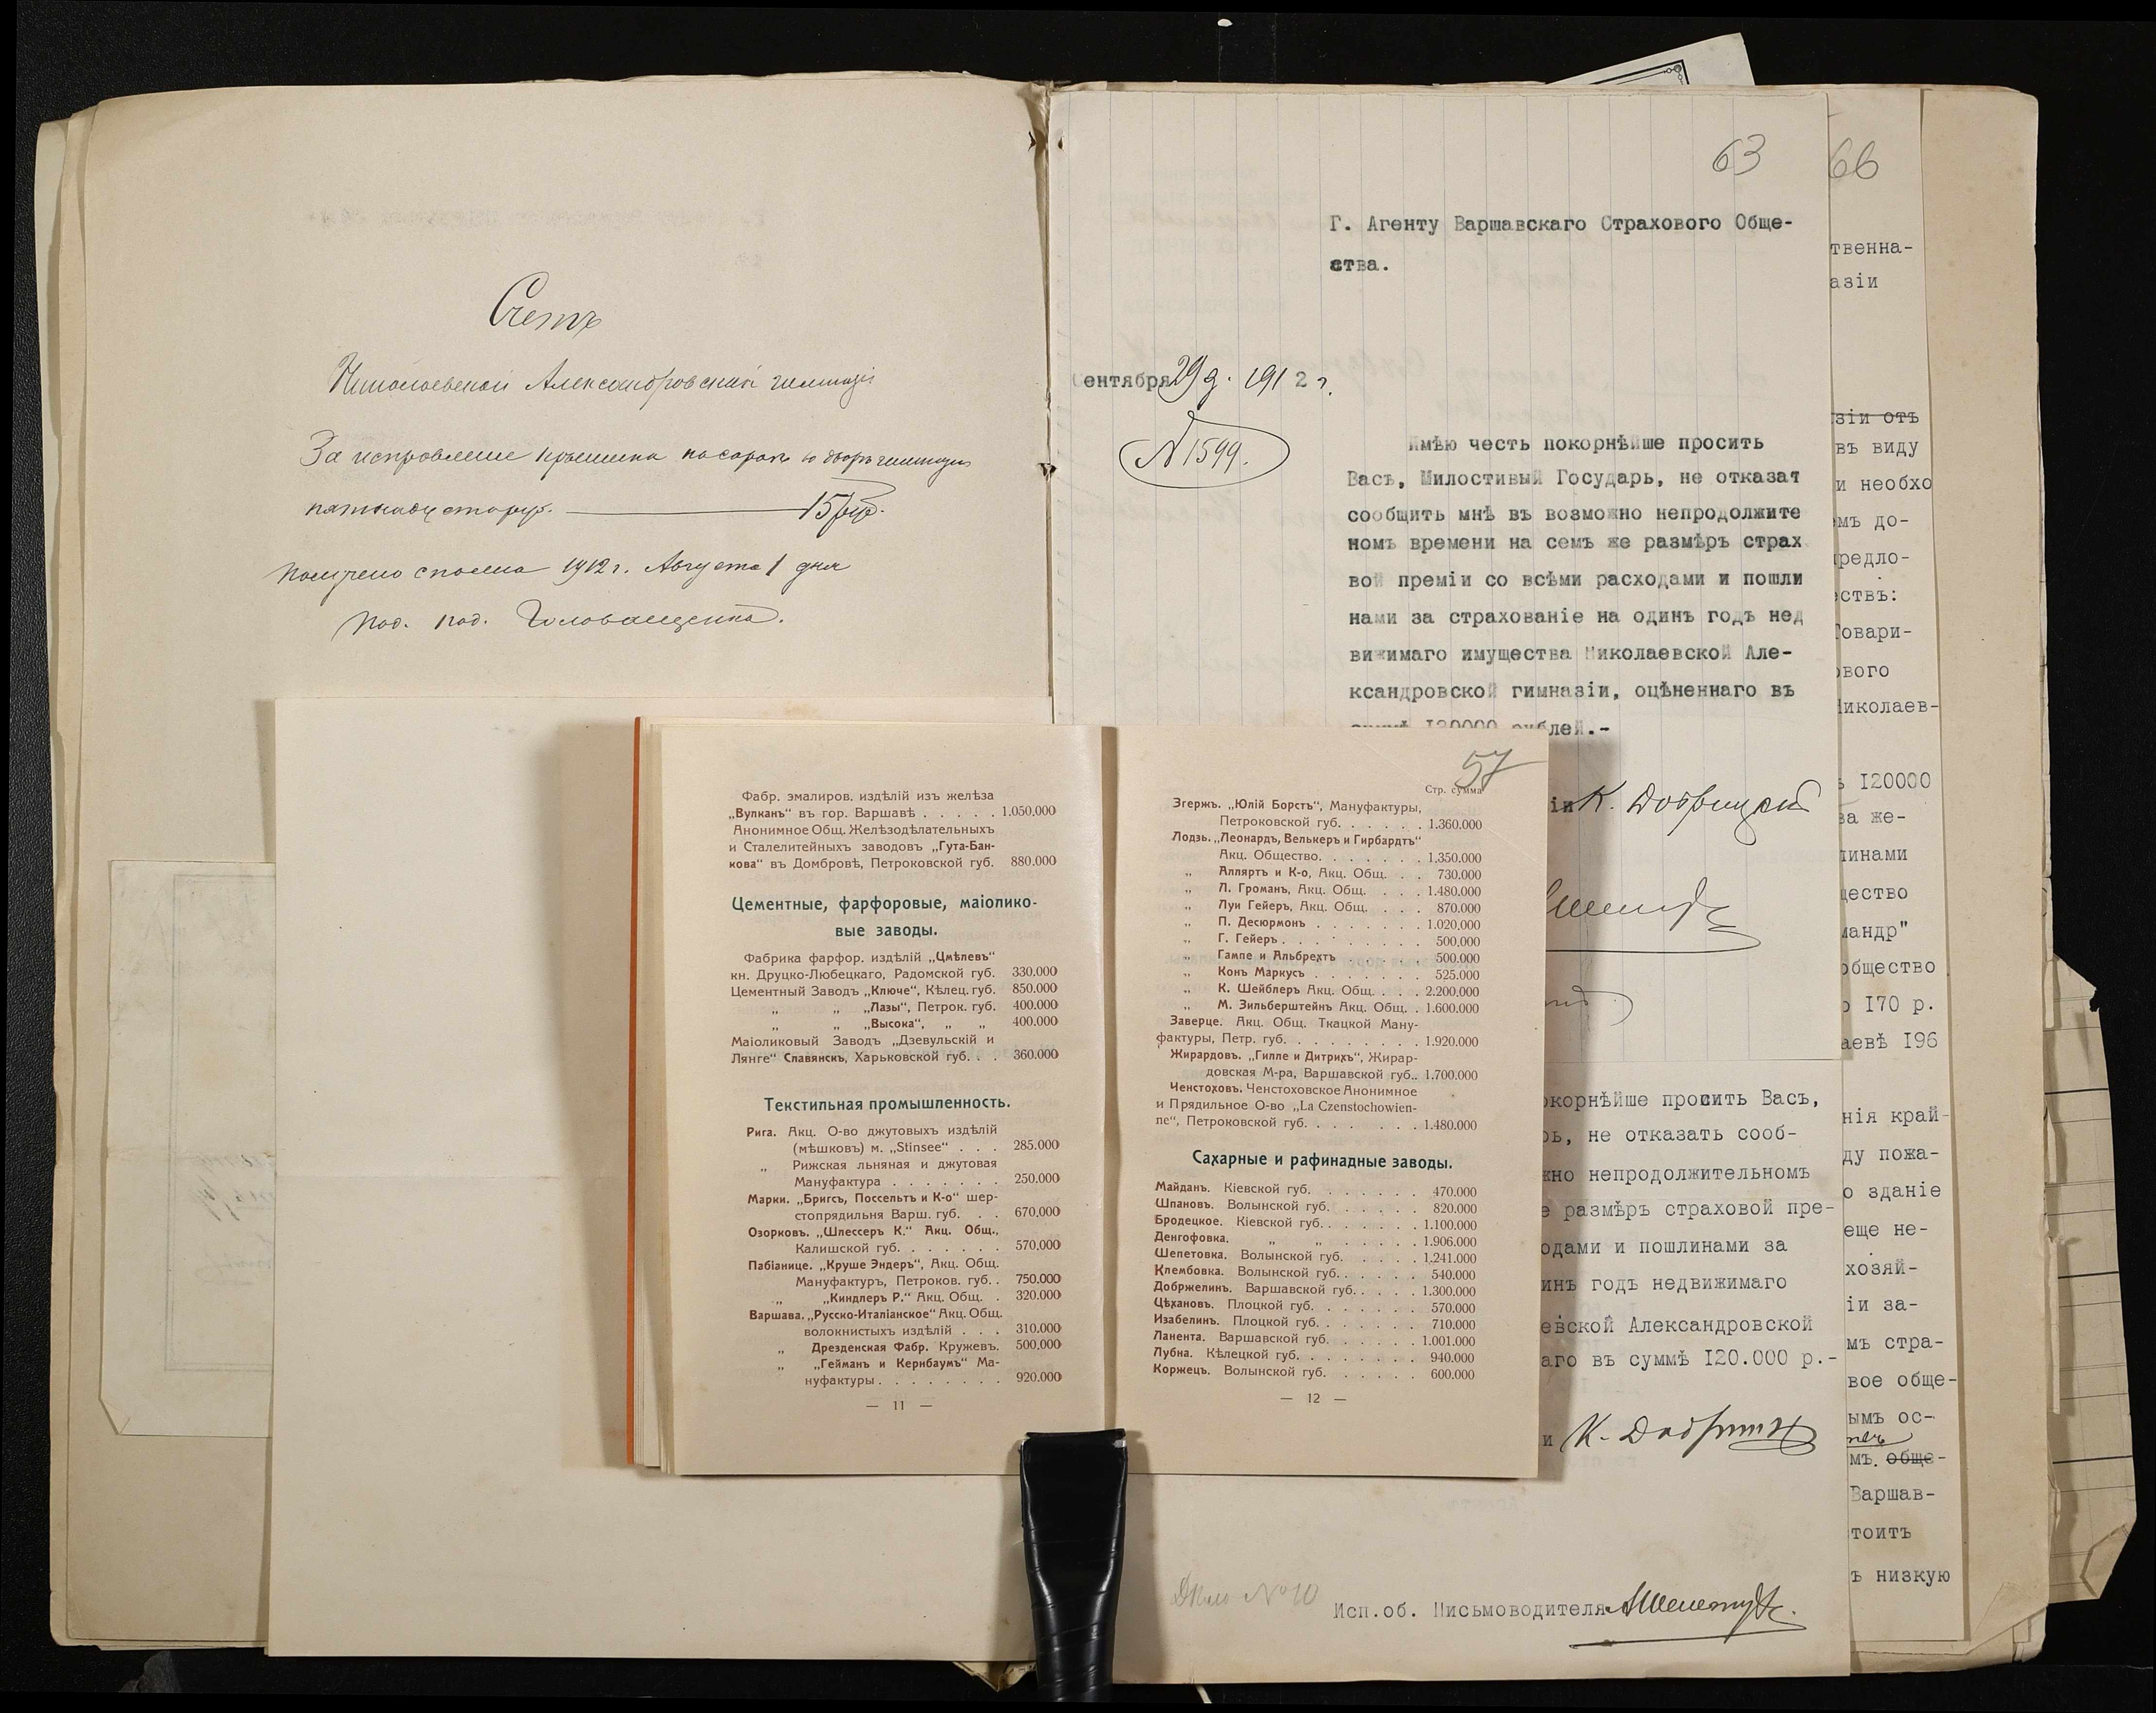 Счетъ
Николаевской Александровской гимназіи
За исправленіе крышина на сараяхъ во дворѣ гимназіи
пятнадцать руб. 15 руб.
Получено сполна 1912 г. Августа 1 дня
Под. под.
63
Г. Агенту Варшавскаго Страхового Обще-
ства.
ентября 29 д. 1912 г.
№ 1599.
Имѣю честь покорнѣйше просить
Васъ, Милостивый Государь, не отказат
сообщить мнѣ въ возможно непродолжите
номъ времени на семъ же размѣръ страх
вой преміи со всѣми расходами и пошли
нами за страхованіе на одинъ годъ нед
вижимаго имущества Николаевской Але-
ксандровской гимназіи, оцѣненнаго въ
суммѣ 120000 рублей.-
іи
66
твенна-
азіи
зіи отъ
въ виду
и необхо
мъ до-
редло-
ствъ:
Товари-
ового
Николаев-
ъ 120000
за же-
линами
щество
мандр"
общество
о 170 р.
аевѣ 196
нія край-
ду пожа-
о зданіе
еще не-
хозяй-
іи за-
мъ стра-
вое обще-
ымъ ос-
мъ. обще-
Варшав-
тоитъ
ъ низкую
Фабр. эмалиров. издѣлій изъ желѣза
„Вулканъ“ въ гор. Варшавѣ . . . . . 1.050.000
Анонимное Общ. Желѣзодѣлательныхъ
и Сталелитейныхъ заводовъ „Гута-Бан-
кова“ въ Домбровѣ, Петроковской губ. 880.000
Цементные, фарфоровые, маіолико-
вые заводы.
Фабрика фарфор. издѣлій „Цмѣлевъ“
кн. Друцко-Любецкаго, Радомской губ. 330.000
Цементный Заводъ „Ключе“, Кѣлец. губ. 850.000
„ „ „Лазы“, Петрок. губ. 400.000
„ „ „Высока“, „ „ 400.000
Маіоликовый Заводъ „Дзевульскій и
Лянге“ Славянскъ, Харьковской губ. . . 360.000
Текстильная промышленность.
Рига. Акц. О-во джутовыхъ издѣлій
(мѣшковъ) м. „Stinsee“ . . . 285.000
„ Рижская льняная и джутовая
Мануфактура . . . . . . . 250.000
Марки. „Бригсъ, Поссельтъ и К-о“ шер-
стопрядильня Варш. губ. . . 670.000
Озорковъ. „Шлессеръ К.“ Акц. Общ.,
Калишской губ. . . . . . . 570.000
Пабіанице. „Круше Эндеръ“, Акц. Общ.
Мануфактуръ, Петроков. губ. . 750.000
„ „Киндлеръ Р.“ Акц. Общ. . 320.000
Варшава. „Русско-Италіанское“ Акц. Общ.
волокнистыхъ издѣлій . . . 310.000
„ Дрезденская Фабр. Кружевъ. 500.000
„ „Гейманъ и Кернбаумъ“ Ма-
нуфактуры . . . . . . . . 920.000
— 11 —
57
Стр. сумма
Згержъ. „Юлій Борстъ“, Мануфактуры,
Петроковской губ. . . . . . 1.360.000
Лодзь. „Леонардъ, Велькеръ и Гирбардтъ“
Акц. Общество. . . . . . . 1.350.000
„ Аллартъ и К-о, Акц. Общ. . . 730.000
„ Л. Громанъ, Акц. Общ. . . . 1.480.000
„ Луи Гейеръ, Акц. Общ. . . . 870.000
„ П. Десюрмонъ . . . . . . . 1.020.000
„ Г. Гейеръ . . . . . . . . . 500.000
„ Гампе и Альбрехтъ . . . . . 500.000
„ Конъ Маркусъ . . . . . . . 525.000
„ К. Шейблеръ Акц. Общ. . . . 2.200.000
„ М. Зильберштейнъ Акц. Общ. . 1.600.000
Заверце. Акц. Общ. Ткацкой Ману-
фактуры, Петр. губ. . . . . . . . . 1.920.000
Жирардовъ. „Гилле и Дитрихъ“, Жирар-
довская М-ра, Варшавской губ. . 1.700.000
Ченстоховъ. Ченстоховское Анонимное
и Прядильное О-во „La Czenstochowien-
ne“, Петроковской губ. . . . . . . 1.480.000
Сахарные и рафинадные заводы.
Майданъ. Кіевской губ. . . . . . . 470.000
Шпановъ. Волынской губ. . . . . . 820.000
Бродецкое. Кіевской губ. . . . . . 1.100.000
Денгофовка. „ „ . . . . . 1.906.000
Шепетовка. Волынской губ. . . . . 1.241.000
Клембовка. Волынской губ. . . . . . 540.000
Добржелинъ. Варшавской губ. . . . . 1.300.000
Цѣхановъ. Плоцкой губ. . . . . . . 570.000
Изабелинъ. Плоцкой губ. . . . . . . 710.000
Ланента. Варшавской губ. . . . . . 1.001.000
Лубна. Кѣлецкой губ. . . . . . . . 940.000
Коржецъ. Волынской губ. . . . . . 600.000
— 12 —
окорнѣйше просить Васъ,
рь, не отказать сооб-
жно непродолжительномъ
е размѣръ страховой пре-
одами и пошлинами за
инъ годъ недвижимаго
евской Александровской
аго въ суммѣ 120.000 р.-
и
Дѣло №10
Исп.об. Письмоводителя